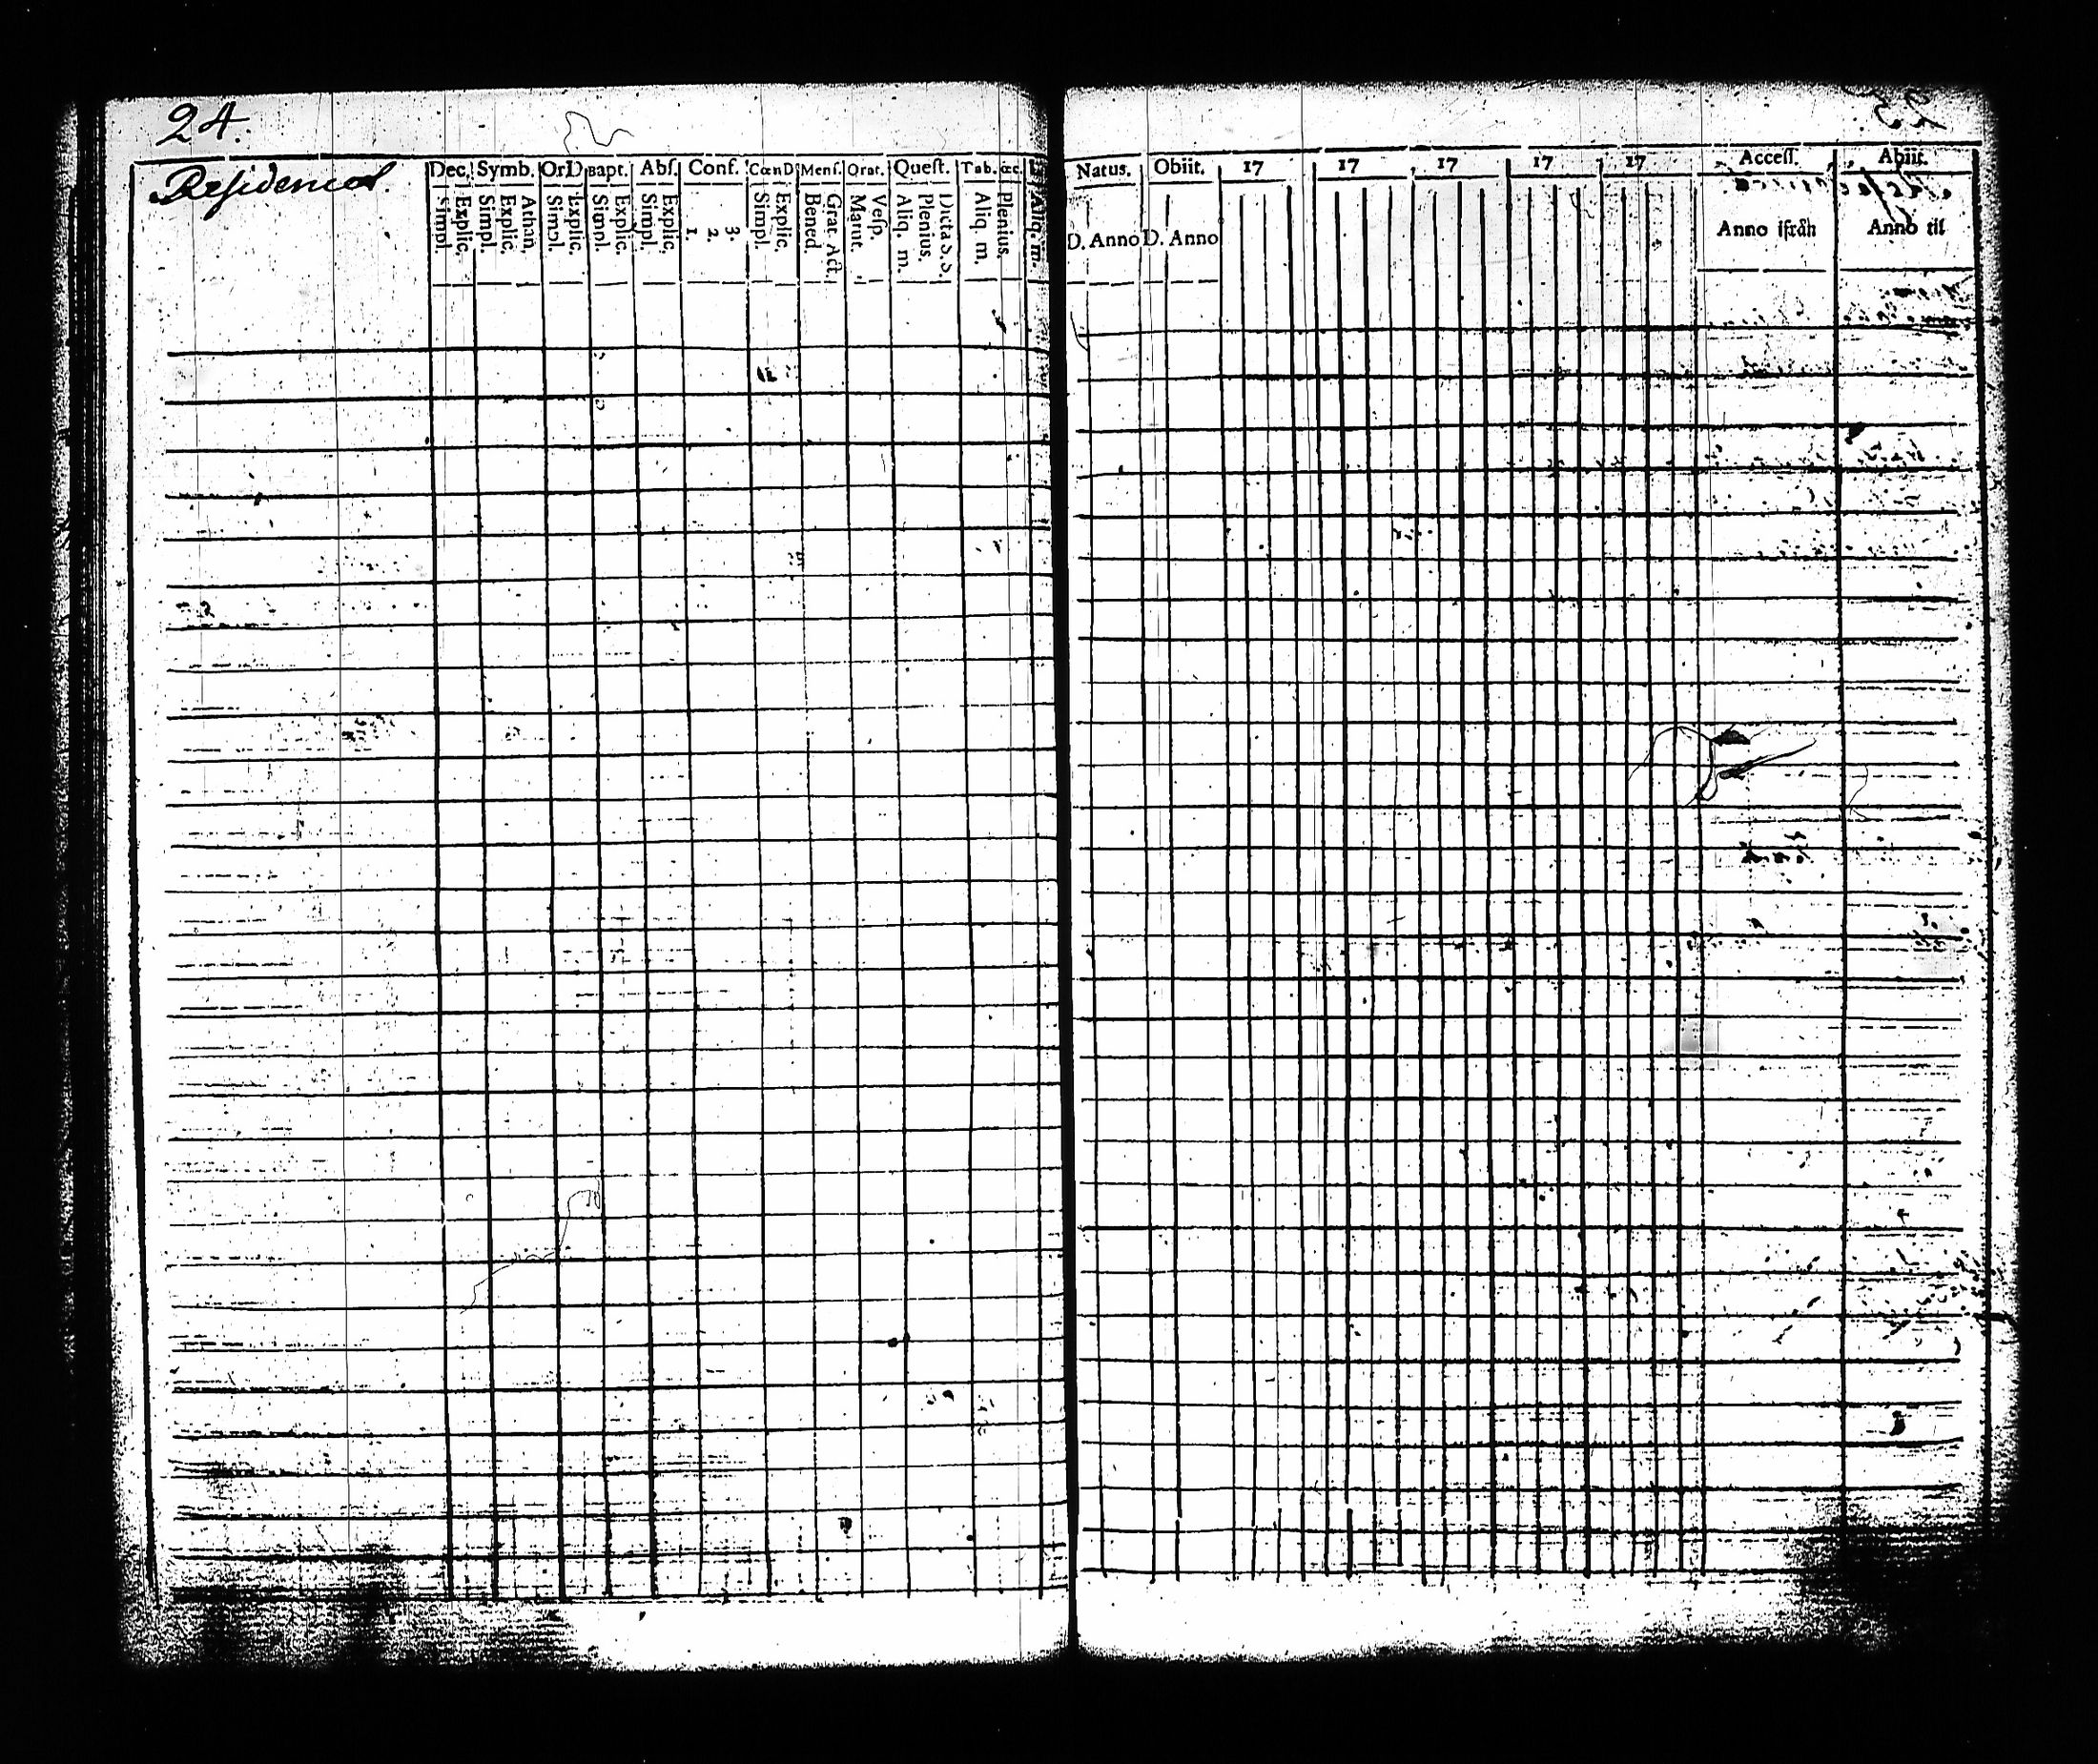 24.
Residencet.
Dec. Symb. Or.D Bapt. Abſ. Conf. CœnD Menſ. Orat. Queſt. Tab. œc.
Simpl. Explic. Simpl. Explic. Athan. Simpl. Explic. Simpl. Explic. Simpl. Explic. 1. 2. 3. Simpl. Explic. Bened. Grat. Act. Matut. Veſp. Aliq. m. Plenius. Dicta S. S. Aliq. m. Plenius. Aliq. m.
Natus. Obiit. 17 17 17 17 17 Acceſſ. Abiit.
D. Anno D. Anno Anno ifråh Anno til